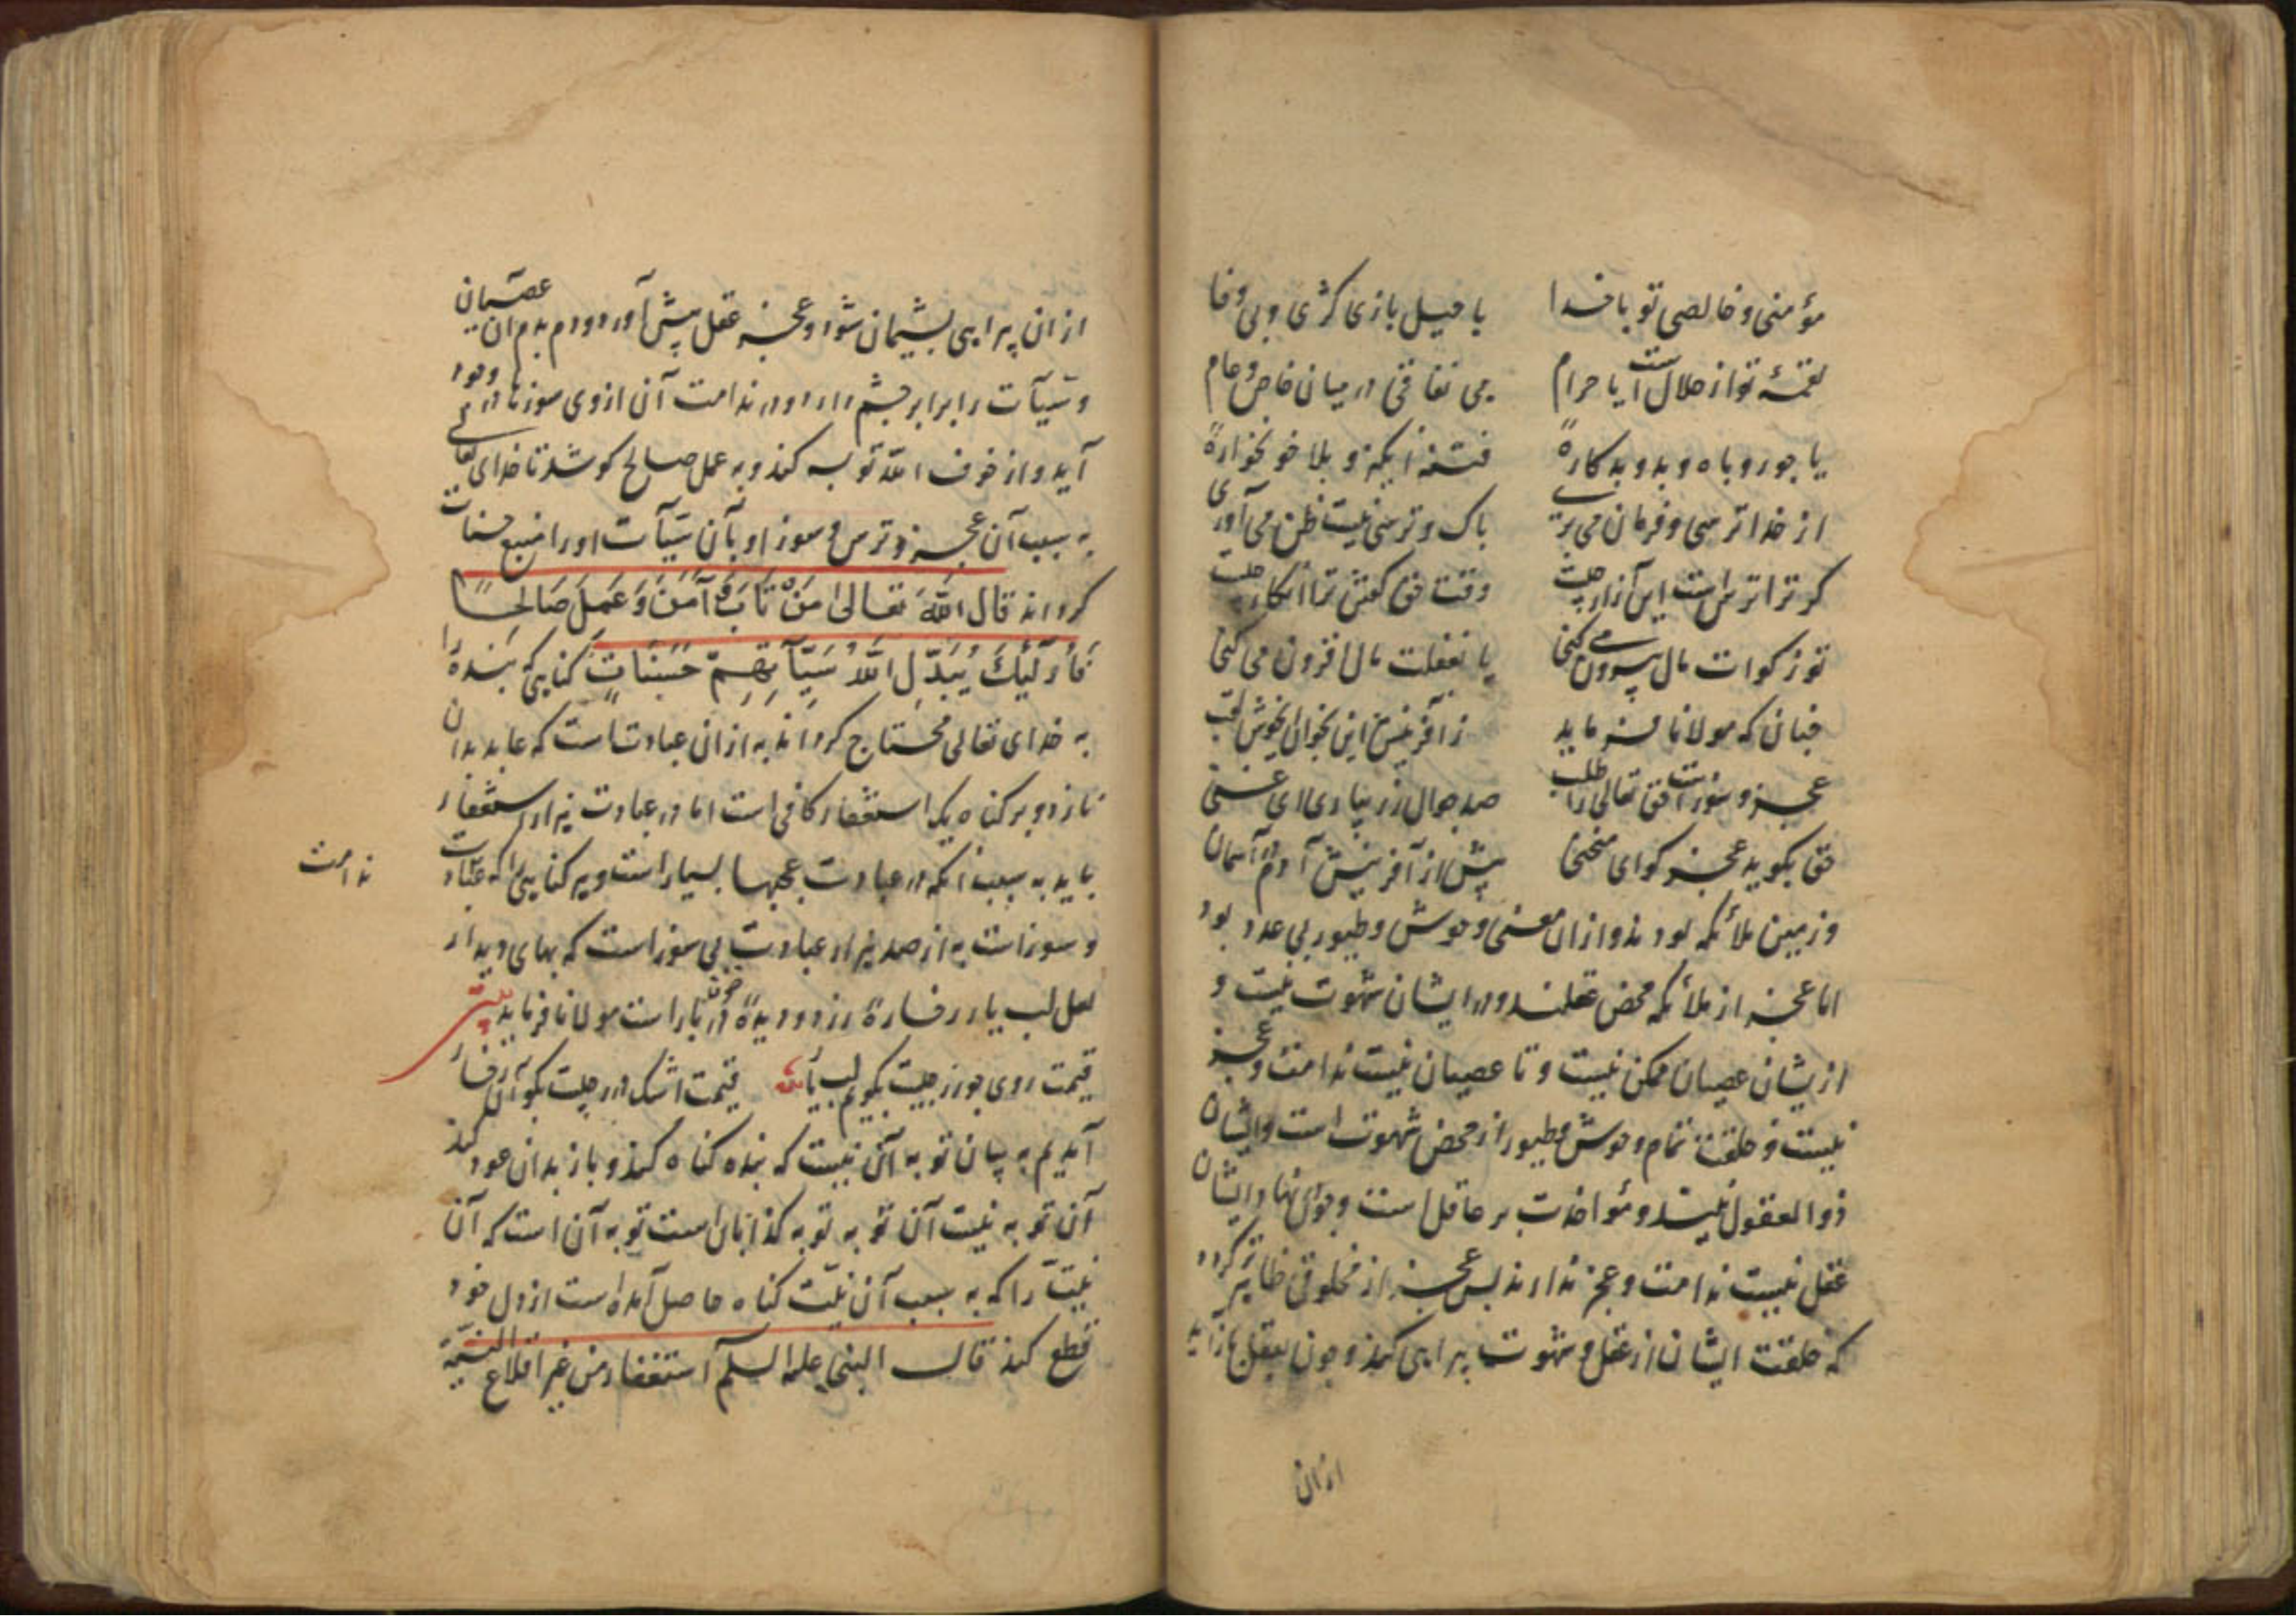 مؤمنی و خالصی تو با خدا    یا حیل بازی کژی و بی وفا
لقمهٔ تو از حلال است آیا حرام    می نفاقی در میان خاص و عام
یا جور و باه و بد و بدکارهٔ    فتنه انگیز و بلا خونخوارهٔ
از خدا ترسی و فرمان می بری    باک و ترسی نیست ظن می آوری
کر ترا ترس است این آزار چیست    وقت حق گفتن ترا انکار چیست
تو زکوات مال بیرون می کنی    یا بغفلت مال افزون می کنی
چنان که مولانا فرماید    ز آفرینش این بخوان ای خوش لقب
عجز و سوز است حق تعالی را طلب    صد جوال زر بیاری ای غنی
حق بکوید عجز کو ای منحنی    پیش از آفرینش آدم در آسمان
و زمین ملائکه بودند و ازان معنی وحوش و طیور بی عدد بود
اما عجز از ملائکه محض عقلند و در ایشان شهوت نیست و
از یشان عصیان ممکن نیست و تا عصیان نیست ندامت و عجز
نیست و خلقت تمام وحوش و طیور از محض شهوت است و ایشان
ذو العقول نیستند و مؤاخذت بر عاقل است و ایشان
عقل نیست ندامت و عجز ندارند پس عجز از مخلوقی ظاهر کردد
که خلقت ایشان از عقل و شهوت بود
ازان
از ان پشیمان شود و عجز عقل پیش آورد و دم بدم ان عصیان
و سیآت را برابر چشم دارد و در ندامت آن ازوی سوز تا در وجود
آید و از خوف الله توبه کند و به عمل صالح کوشد تا خدای تعالی
به سبب آن عجز و ترس و سوز او بآن سیآت او را منبع حسنات
کرداند قال الله تعالی مَنْ تَابَ وَ آمَنَ وَ عَمِلَ صَالِحًا
فَأُولَٰئِكَ يُبَدِّلُ اللَّهُ سَيِّآتِهِمْ حَسَنَاتٍ کناهی که بنده را
به خدای تعالی محتاج کرداند به ازان عبادت است که عابد بدان
نازد و بر کناه یک استغفار کافی است اما در عبادت هزار استغفار
باید به سبب انکه در عبادت عجبها بسیار است و هر کناهی را که عبادت
ندامت
و سوز است به از صد هزار عبادت بی سوز است که بهای دیدار
لعل لب یار رخسارهٔ زرد و دیدهٔ در بار است مولانا فرماید بیت
قیمت روی چو زر چیست بکویم لب یار    قیمت اشک در چیست بکو آن رخسار
آمدیم به بیان توبه آن نیست که بنده کناه کند و باز بدان عود کند
آن توبه نیست آن توبه توبه کذابان است توبه آن است که آن
نیت را که به سبب آن نیت کناه حاصل آمده است از دل خود
قطع کند قال النبی علیه السلم استغفار من غیر اقلاع النیة